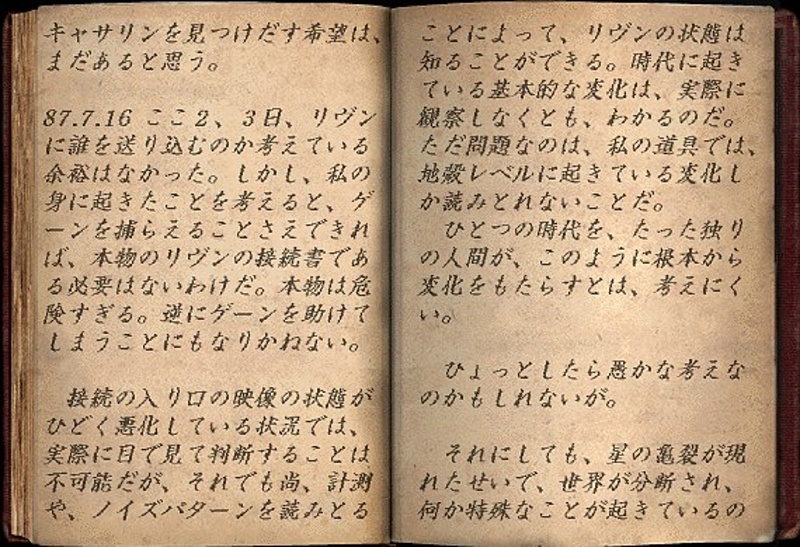 キャサリンを見つけだす希望は、
まだあると思う。
87.7.16 ここ2、3日、リヴン
に誰を送り込むのか考えている
余裕はなかった。しかし、私の
身に起きたことを考えると、ゲ
ーンを捕らえることさえできれ
ば、本物のリヴンの接続書であ
る必要はないわけだ。本物は危
険すぎる。逆にゲーンを助けて
しまうことにもなりかねない。
接続の入り口の映像の状態が
ひどく悪化している状況では、
実際に目で見て判断することは
不可能だが、それでも尚、計測
や、ノイズパターンを読みとる
ことによって、リヴンの状態は
知ることができる。時代に起き
ている基本的な変化は、実際に
観察しなくとも、わかるのだ。
ただ問題なのは、私の道具では、
地殻レベルに起きている変化し
か読みとれないことだ。
ひとつの時代を、たった独り
の人間が、このように根本から
変化をもたらすとは、考えにく
い。
ひょっとしたら愚かな考えな
のかもしれないが。
それにしても、星の亀裂が現
れたせいで、世界が分断され、
何か特殊なことが起きているの